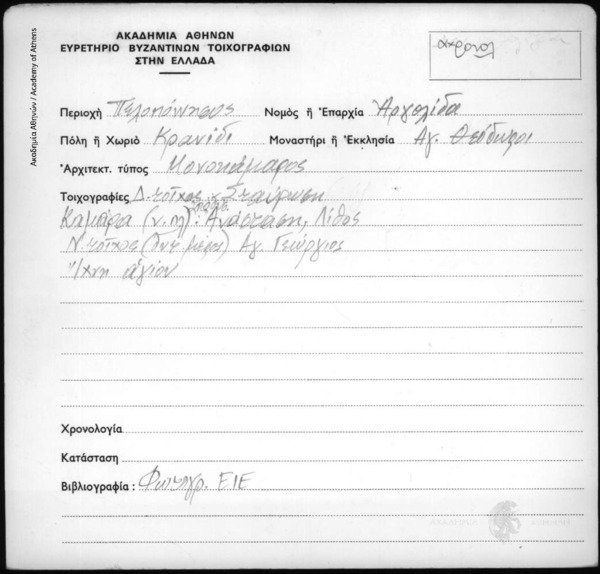 ΑΚΑΔΗΜΙΑ ΑΘΗΝΩΝ
ΕΥΡΕΤΗΡΙΟ ΒΥΖΑΝΤΙΝΩΝ ΤΟΙΧΟΓΡΑΦΙΩΝ
ΣΤΗΝ ΕΛΛΑΔΑ
αχρονολ
Ακαδημία Αθηνών / Academy of Athens
Περιοχή Πελοπόννησος Νομός ἤ Ἐπαρχία Ἀργολίδα
Πόλη ἤ Χωριό Κρανίδι Μοναστήρι ἤ Ἐκκλησία Αγ. Θεόδωροι
Ἀρχιτεκτ. τύπος Μονοκάμαρος
Τοιχογραφίες Δ. τοῖχος Σταύρωση
Καμάρα (ν. πλ): Ἀνάσταση, Λίθος
Ν. τοῖχος (δυτ. μέρος) Αγ. Γεώργιος
Ἴχνη ἁγίων
Χρονολογία
Κατάσταση
Βιβλιογραφία : Φωτογρ. ΕΙΕ